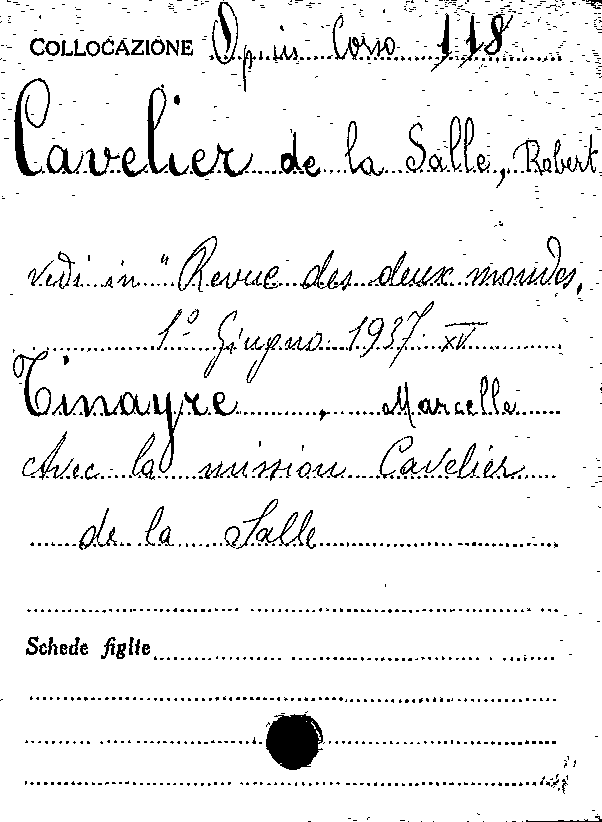 COLLOCAZIONE Op. in Corso 118
Cavelier de la Salle, Robert
vedi in "Revue des deux mondes,
1º Giugno 1937 XV
Tinayre, Marcelle
Avec la mission Cavelier
de la Salle
Schede figlie